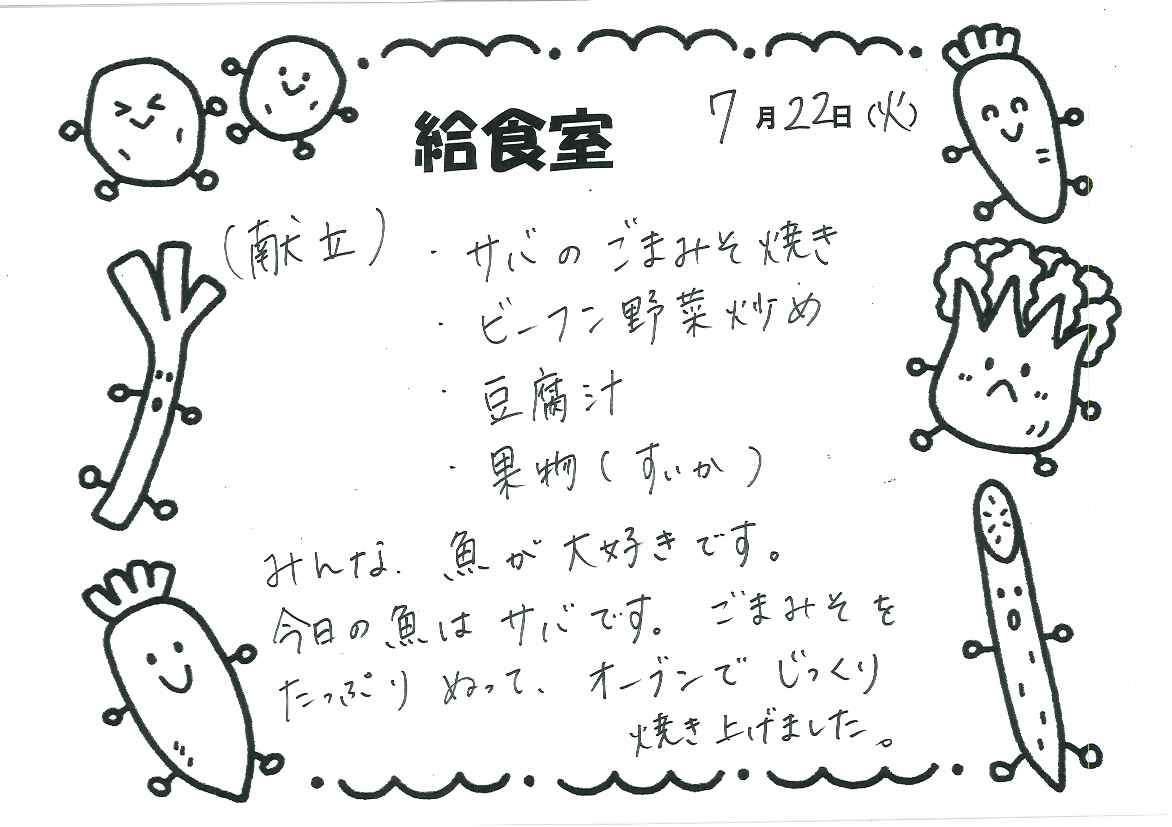 給食室
7月22日(火)
(献立)・サバのごまみそ焼き
・ビーフン野菜炒め
・豆腐汁
・果物(すいか)
みんな、魚が大好きです。
今日の魚はサバです。ごまみそを
たっぷりぬって、オーブンでじっくり
焼き上げました。